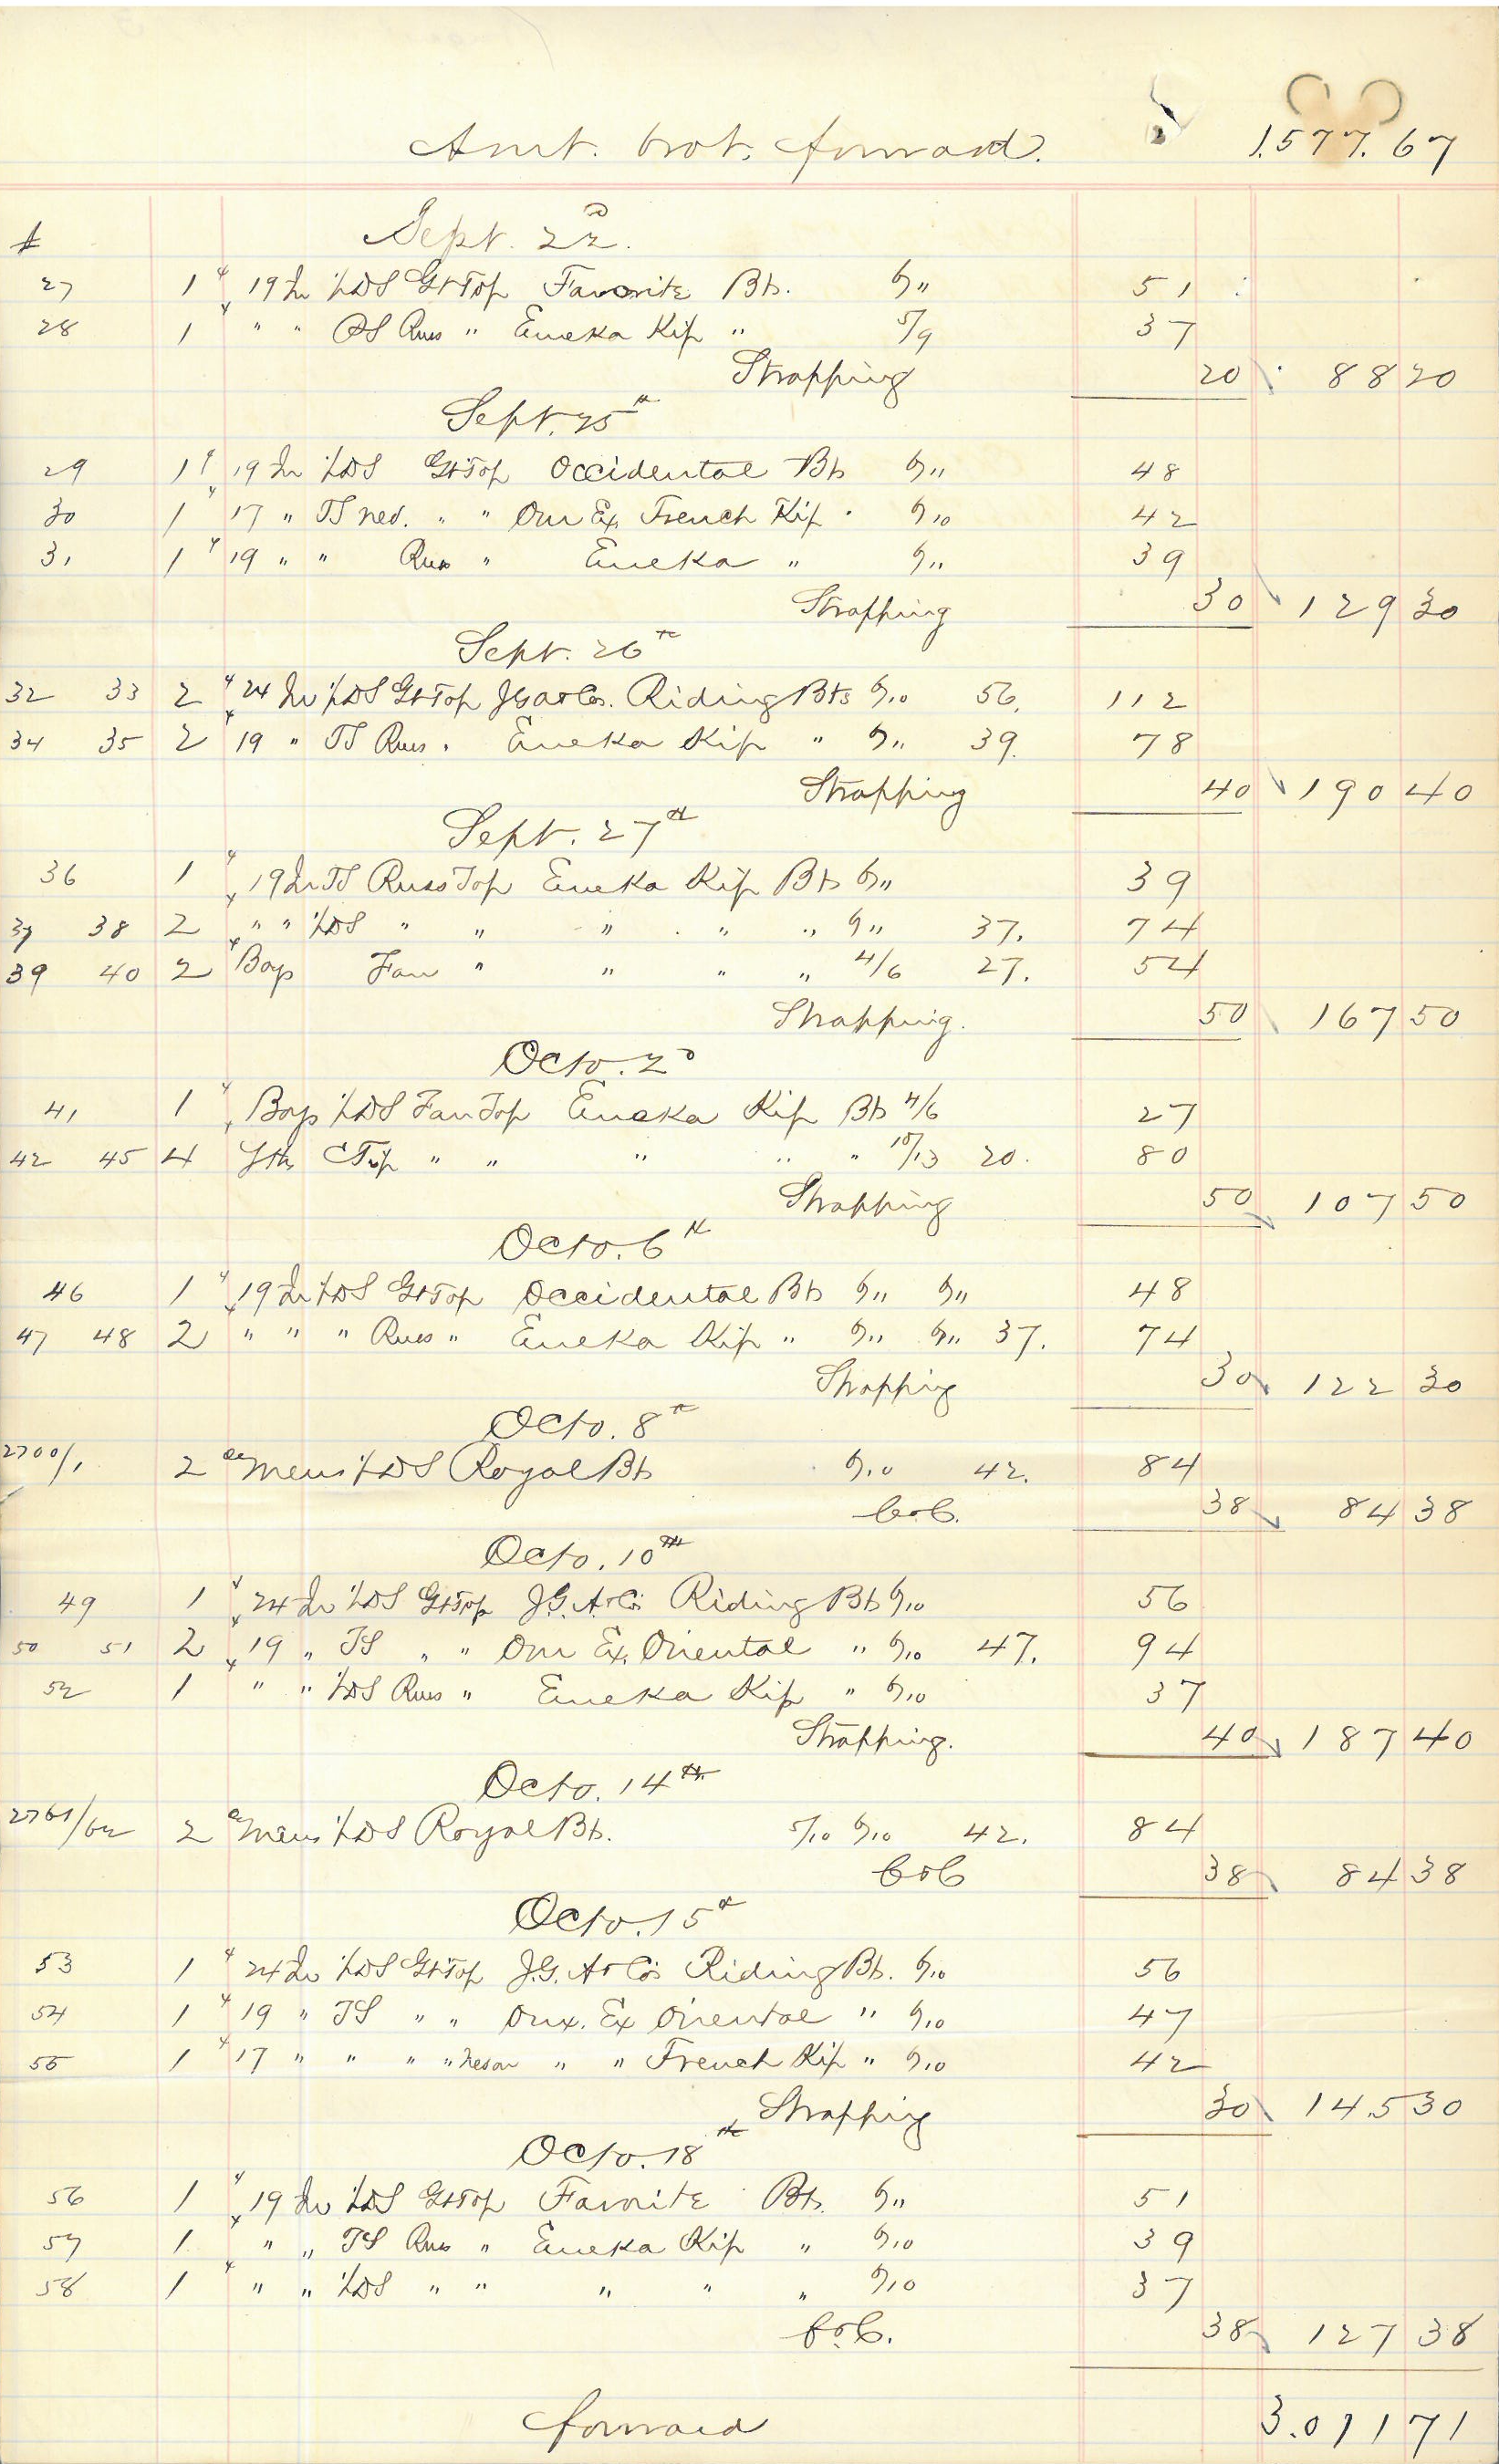 Amt. brot. forward. 1.577.67
Sept. 22d
27 1 19 In 1/2DS GtTop Favorite Bts. 6/11 51
28 1 " " DS Russ " Eureka Kip " 5/9 37
Strapping 20 88 20
Sept. 25th
29 1 19 In 1/2DS GtTop Occidental Bts 6/11 48
30 1 17 " TS " " Our Ex. French Kip " 6/10 42
31 1 19 " " Russ " Eureka " 6/11 39
Strapping 30 129 30
Sept. 26th
32 33 2 24 In 1/2DS GtTop J.G.A&Cos. Riding Bts 6/10 56. 112
34 35 2 19 " TS Russ " Eureka Kip " 6/11 39. 78
Strapping 40 190 40
Sept. 27th
36 1 19 In TS Russ Top Eureka Kip Bts 6/11 39
37 38 2 " " 1/2DS " " " " " 6/11 37. 74
39 40 2 Boys Fan " " " " 4/6 27. 54
Strapping. 50 167 50
Octo. 2d
41 1 Boys 1/2DS Fan Top Eureka Kip Bts 4/6 27
42 45 4 Yths CTip " " " " " 10/13 20. 80
Strapping 50 107 50
Octo. 6th
46 1 19 In 1/2DS GtTop Occidental Bts 6/11 6/11 48
47 48 2 " " " Russ " Eureka Kip " 6/11 6/11 37. 74
Strapping 30 122 30
Octo. 8th
2700/1 2 Mens 1/2DS Royal Bts 6/10 42. 84
CoC. 38 84 38
Octo. 10th
49 1 24 In 1/2DS GtTop J.G.A&Cos Riding Bts 6/10 56
50 51 2 19 " TS " " Our Ex. Oriental " 6/10 47. 94
52 1 " " 1/2DS Russ " Eureka Kip " 6/10 37
Strapping. 40 187 40
Octo. 14th
2761/62 2 Mens 1/2DS Royal Bts. 5/10 6/10 42. 84
CoC 38 84 38
Octo. 15th
53 1 24 In 1/2DS GtTop J.G.A&Cos Riding Bts. 6/10 56
54 1 19 " TS " " Our. Ex Oriental " 6/10 47
55 1 17 " " " " " " French Kip " 6/10 42
Strapping 30 145 30
Octo. 18th
56 1 19 In 1/2DS GtTop Favorite Bts. 6/11 51
57 1 " " TS Russ " Eureka Kip " 6/10 39
58 1 " " 1/2DS " " " " " 6/10 37
CoC. 38 127 38
forward 3.011 71